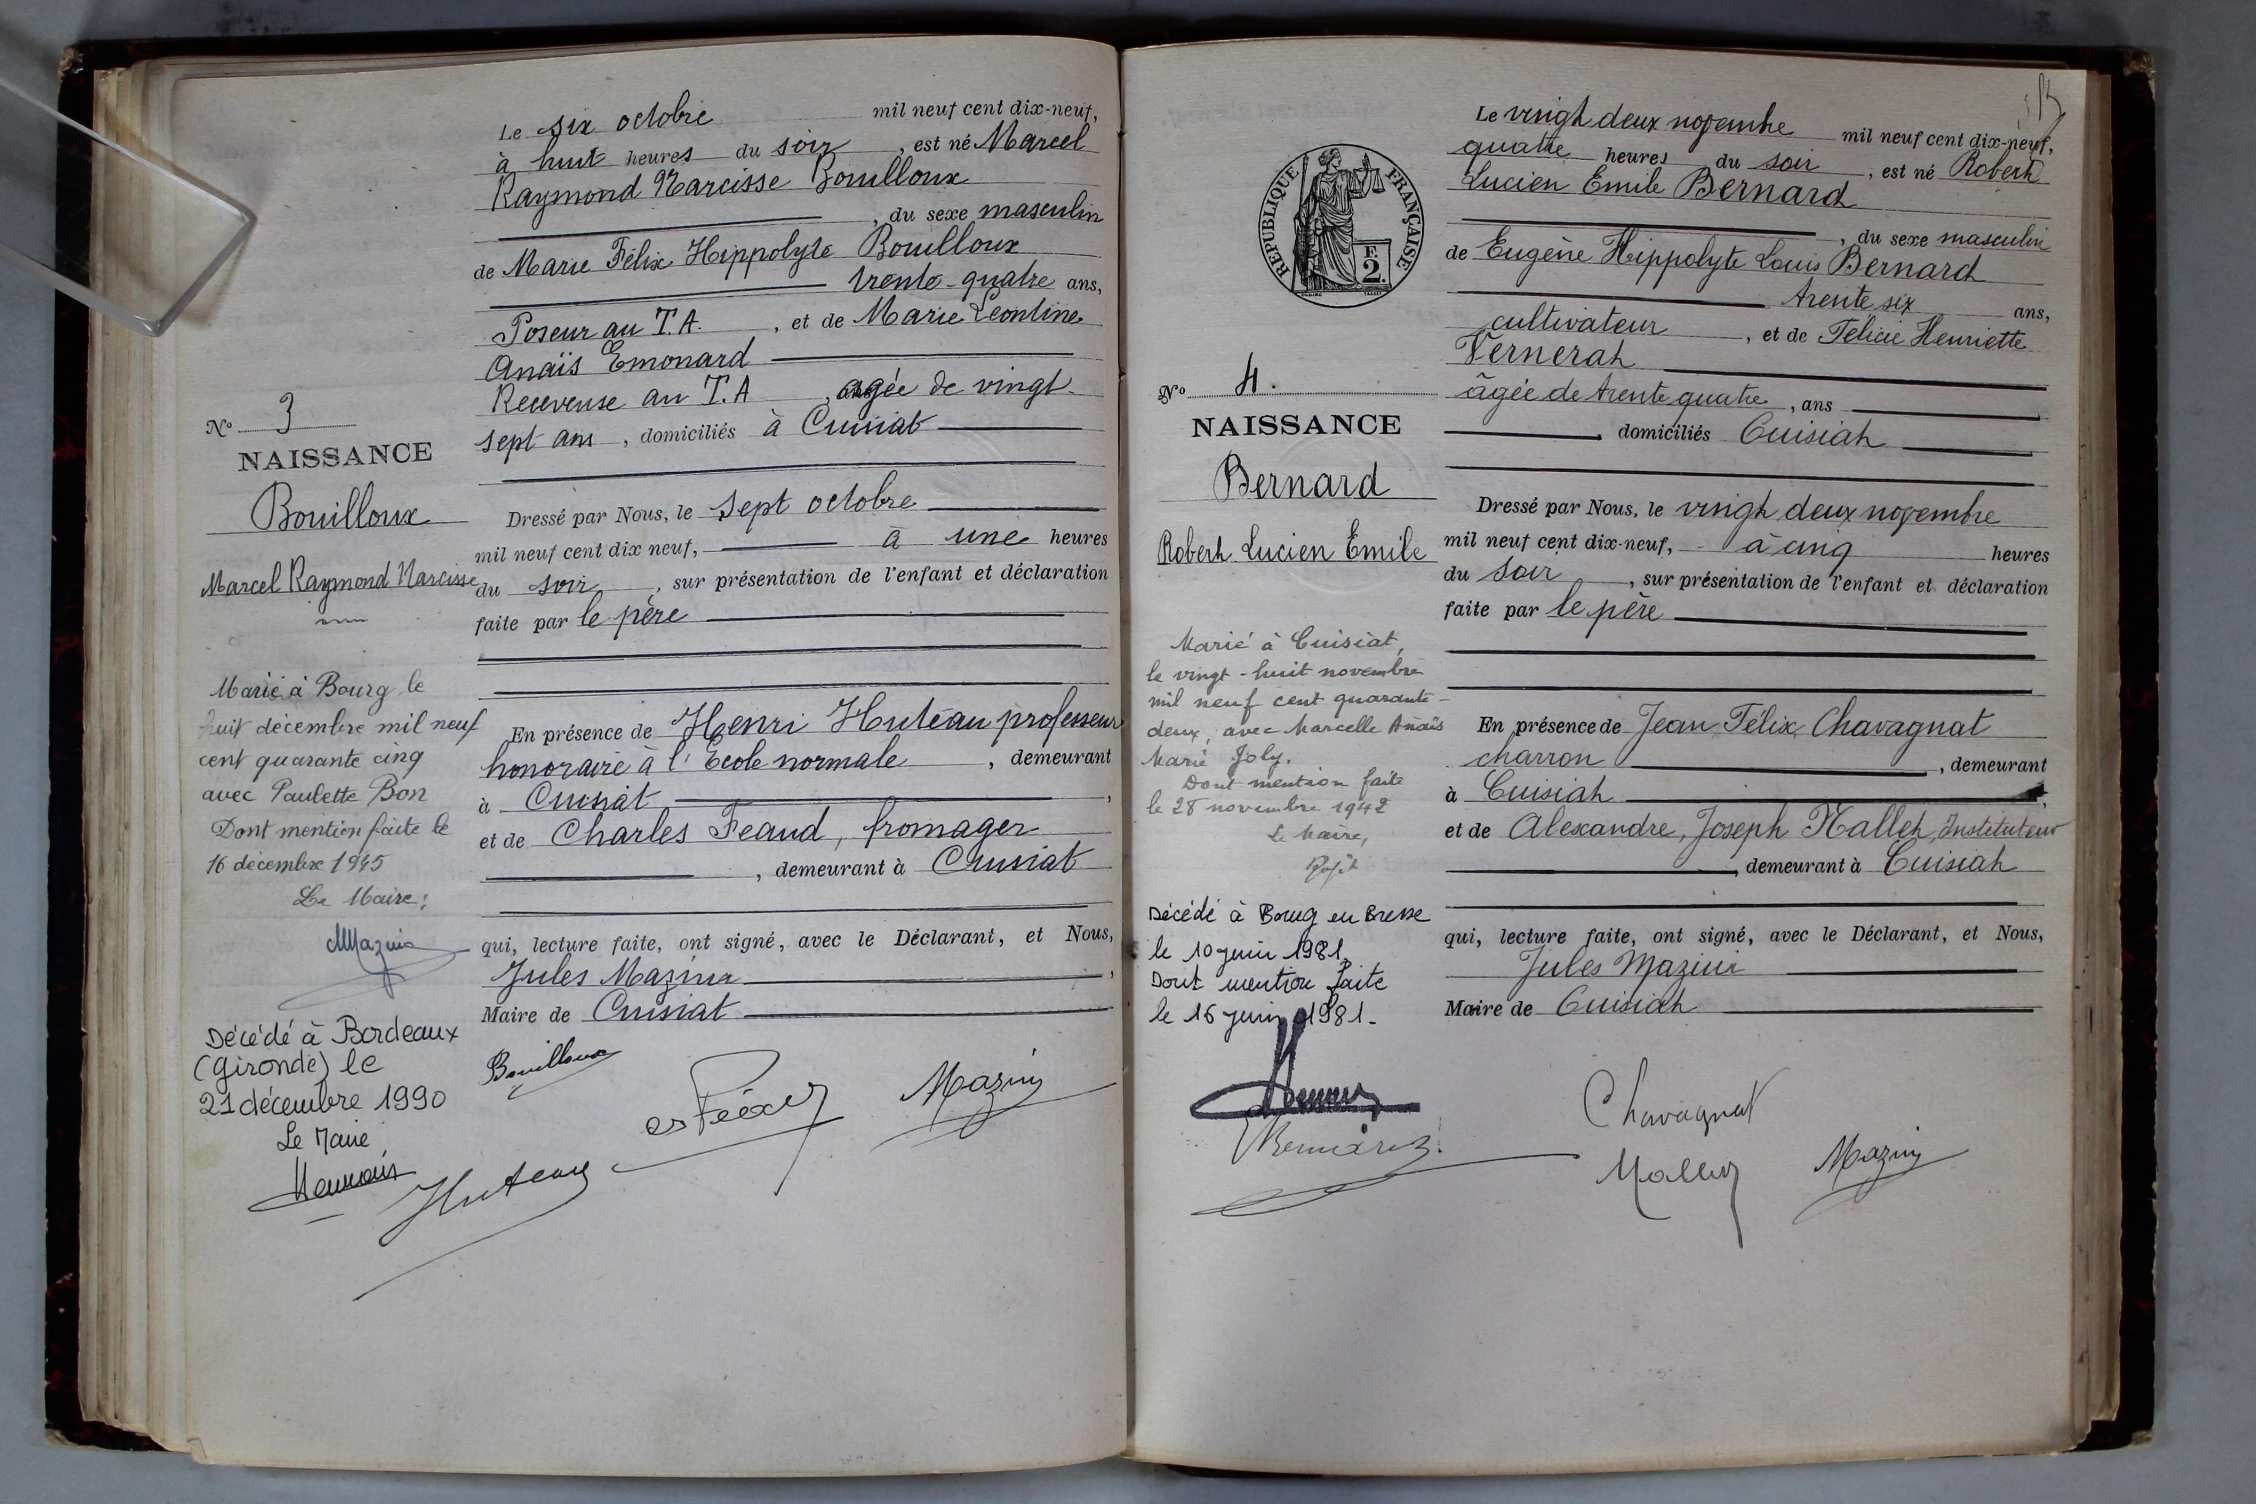 Le six octobre mil neuf cent dix-neuf,
à huit heures du soir, est né Marcel
Raymond Narcisse Bouilloux
, du sexe masculin
de Marie Félix Hippolyte Bouilloux
trente-quatre ans,
Poseur au T.A. , et de Marie Léontine
Anaïs Emonard
Receveuse au T.A , agée de vingt-
sept ans , domiciliés à Cuisiat
No 3
NAISSANCE
Bouilloux
Marcel Raymond Narcisse
Dressé par Nous, le sept octobre
mil neuf cent dix neuf, à une heures
du soir , sur présentation de l'enfant et déclaration
faite par le père
Marié à Bourg le
huit décembre mil neuf
cent quarante cinq
avec Paulette Bon
Dont mention faite le
16 décembre 1945
Le Maire :
Mazuir
Décédé à Bordeaux
(Gironde) le
21 décembre 1990
Le Maire
En présence de Henri Huteau professeur
honoraire à l'Ecole normale , demeurant
à Cuisiat ,
et de Charles Feaud, fromager
, demeurant à Cuisiat
qui, lecture faite, ont signé, avec le Déclarant, et Nous,
Jules Mazuir ,
Maire de Cuisiat
Bouilloux
Mazuir
Huteau
Le vingt deux novembre mil neuf cent dix-neuf,
quatre heures du soir , est né Robert
Lucien Emile Bernard
, du sexe masculin
de Eugène Hippolyte Louis Bernard
trente six ans,
cultivateur , et de Félicie Henriette
Vernerat
âgée de trente quatre , ans
, domiciliés Cuisiat
RÉPUBLIQUE FRANÇAISE
F.
2.
No 4.
NAISSANCE
Bernard
Robert Lucien Emile
Dressé par Nous, le vingt deux novembre
mil neuf cent dix-neuf, à cinq heures
du soir , sur présentation de l'enfant et déclaration
faite par le père
Marié à Cuisiat,
le vingt-huit novembre
mil neuf cent quarante-
deux, avec Marcelle Anaïs
Marie Joly.
Dont mention faite
le 28 novembre 1942
Le Maire,
Décédé à Bourg en Bresse
le 10 juin 1981.
Dont mention faite
le 16 juin 1981.
En présence de Jean Félix Chavagnat
charron , demeurant
à Cuisiat ,
et de Alexandre, Joseph Mallet, Instituteur
, demeurant à Cuisiat
qui, lecture faite, ont signé, avec le Déclarant, et Nous,
Jules Mazuir
Maire de Cuisiat
Bernard
Chavagnat
Mallet
Mazuir